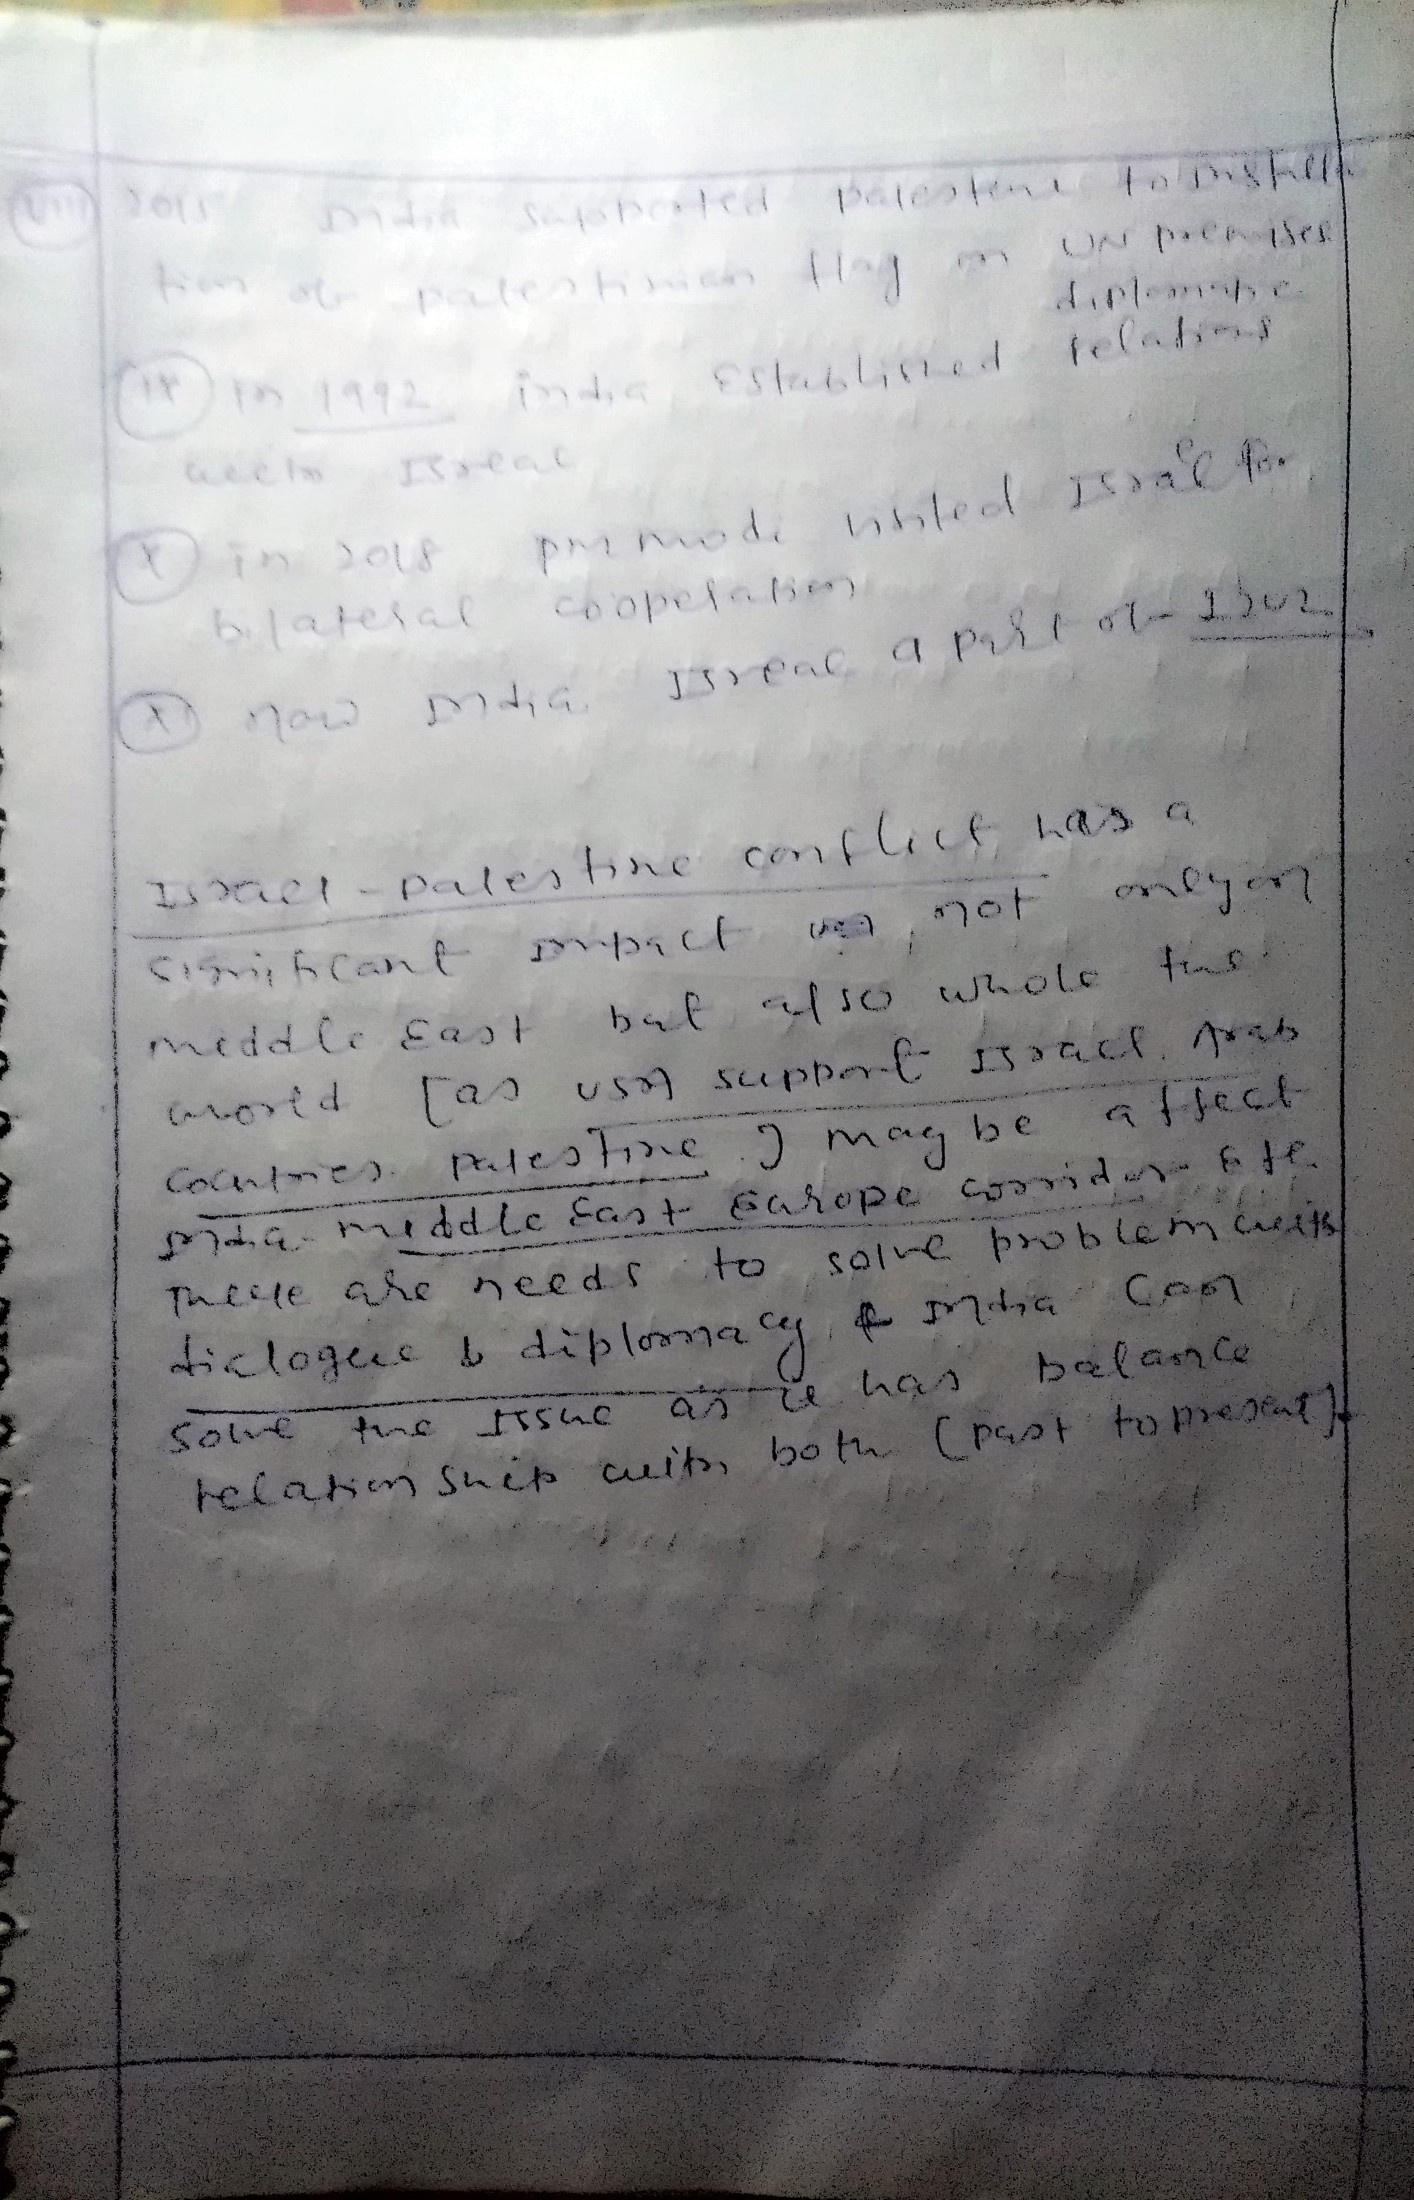 (VIII) 2015 India supported Palestine to installa
tion of palestinian flag in UN premises
diplomatic
(IX) In 1992 india Established relations
with Isreal
(X) in 2018 pm modi visited Israel for
bilateral cooperation
(XI) Now India Isreal a part of I2U2
Israel - Palestine conflict has a
significant impact not only on
middle East but also whole the
world [as USA support Israel. Arab
countries. Palestine] may be affect
India - middle East Europe corridor Etc.
There are needs to solve problem with
dialogue & diplomacy & India Can
solve the Issue as it has balance
relation ship with both (past to present).